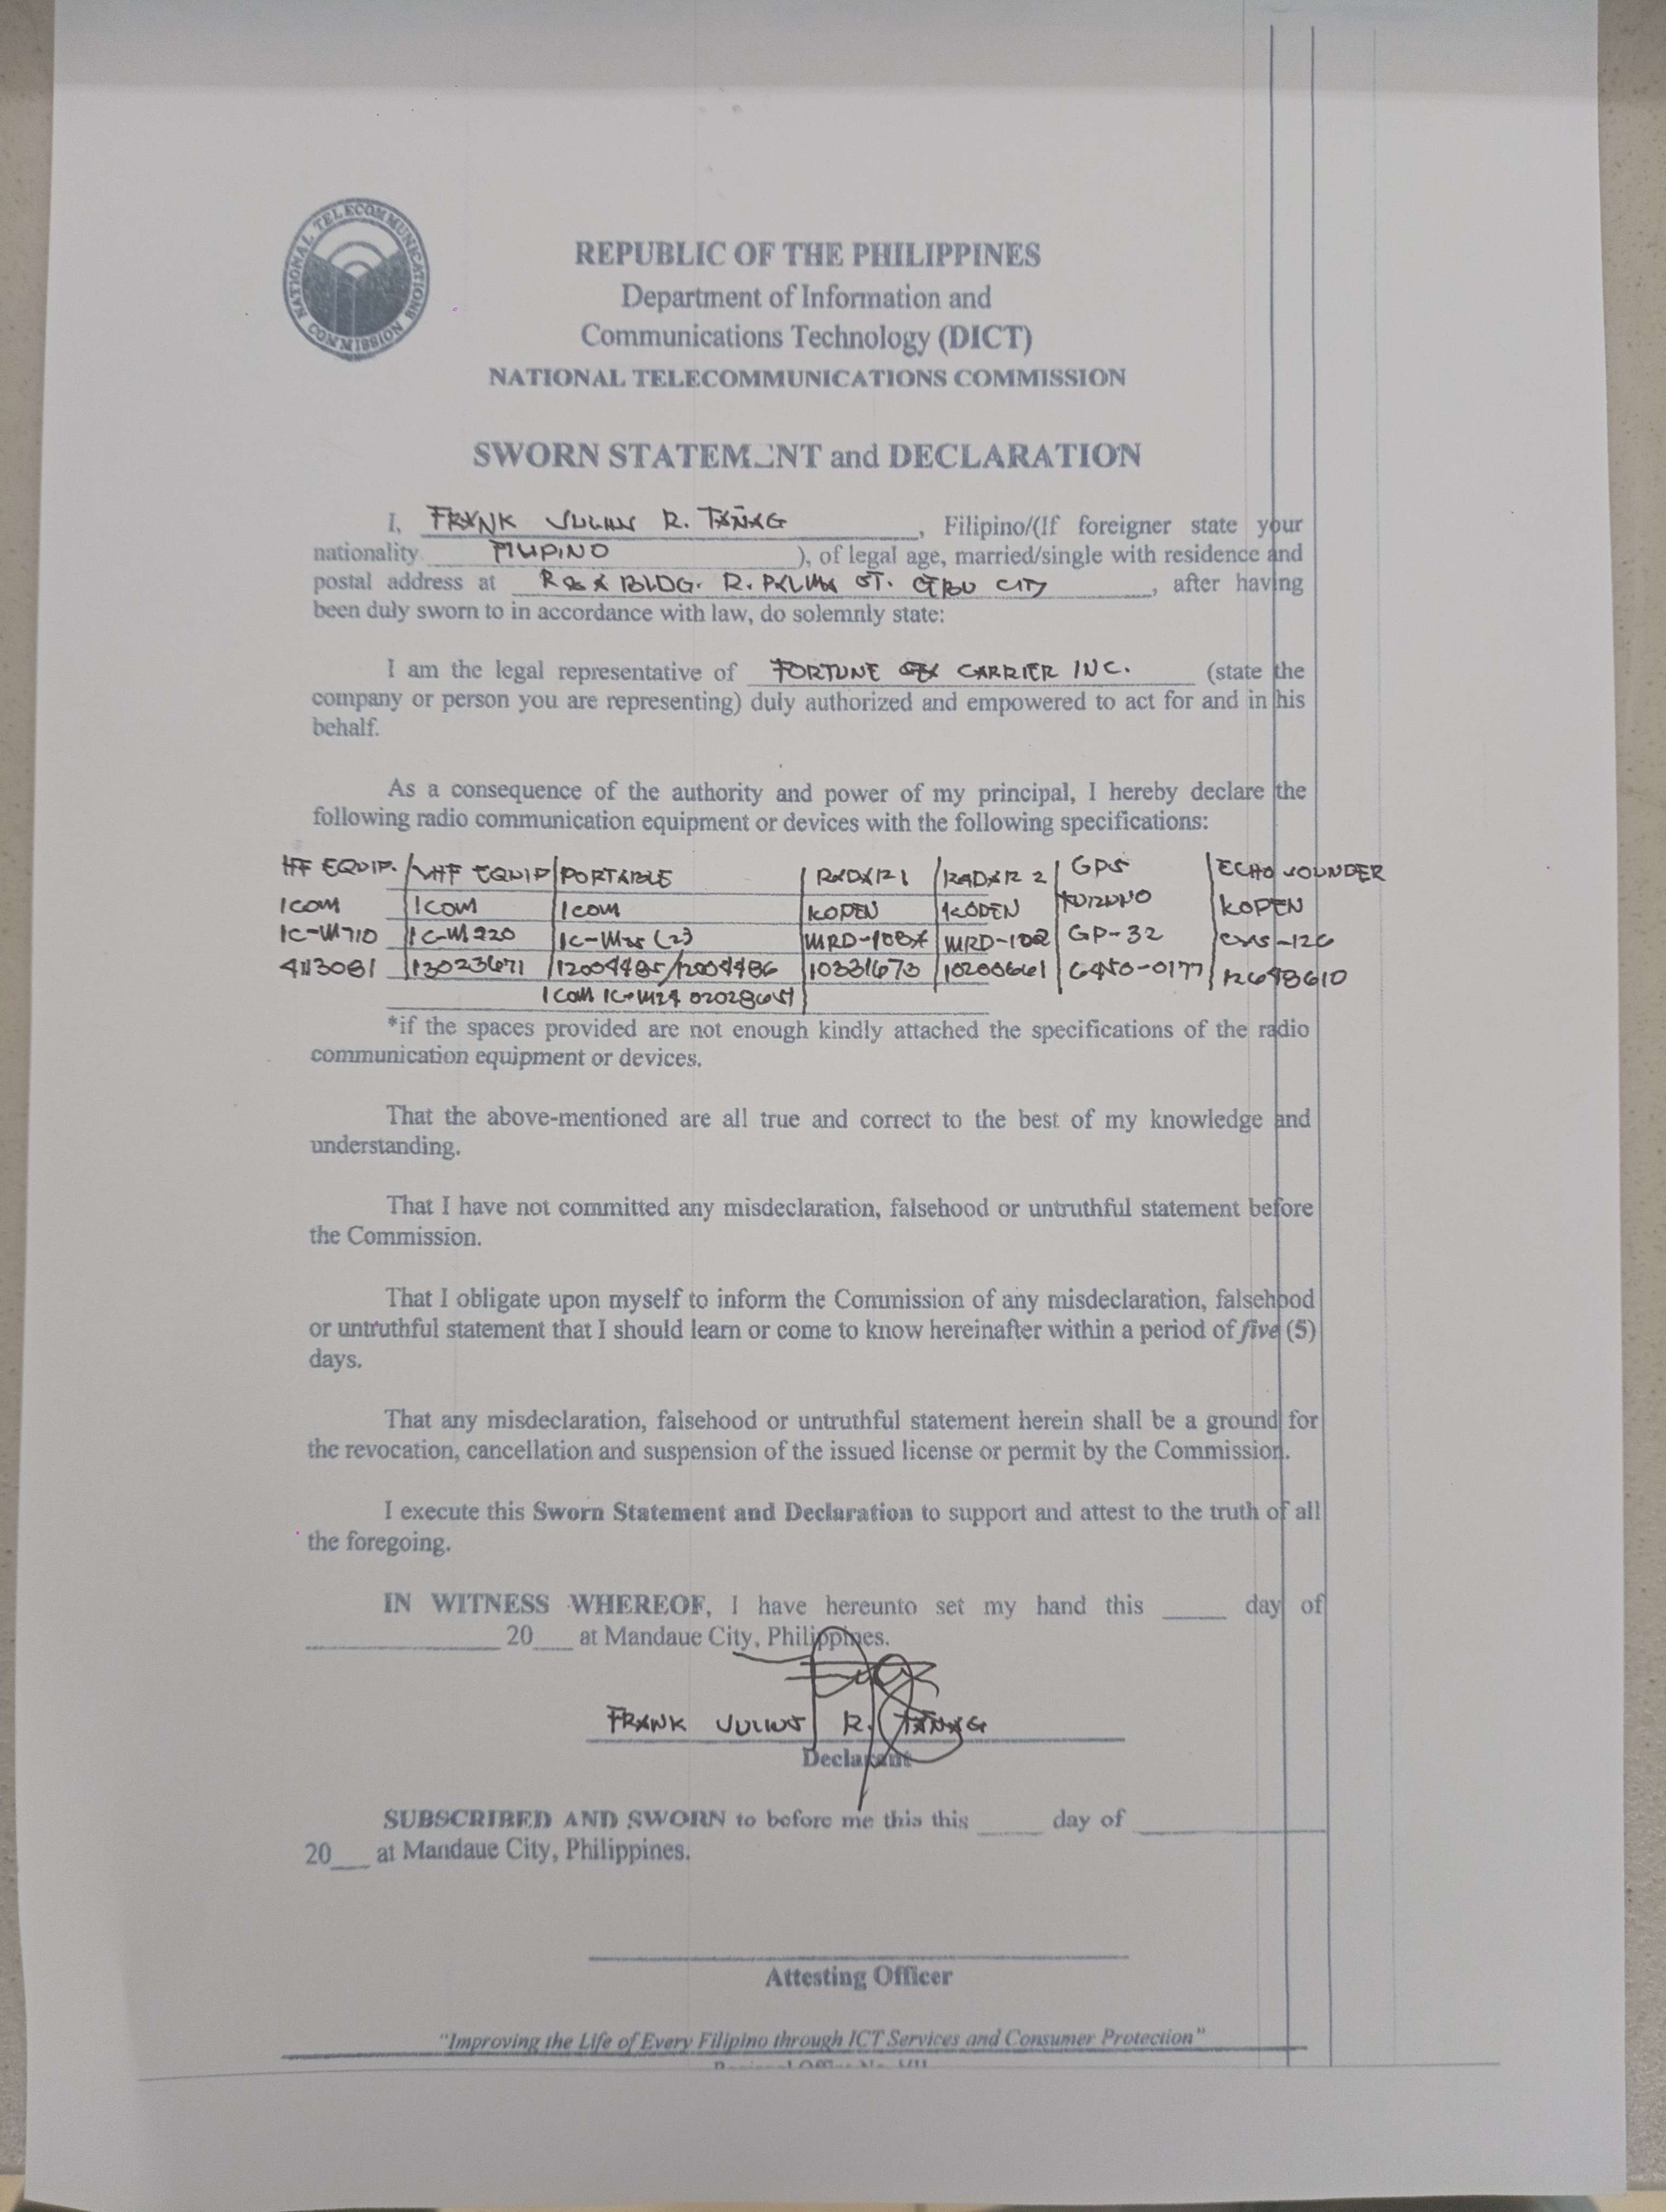 NATIONAL TELECOMMUNICATIONS COMMISSION
REPUBLIC OF THE PHILIPPINES
Department of Information and
Communications Technology (DICT)
NATIONAL TELECOMMUNICATIONS COMMISSION
SWORN STATEMENT and DECLARATION
I, FRANK JULIUS R. TAÑAG, Filipino/(If foreigner state your
nationality FILIPINO), of legal age, married/single with residence and
postal address at BLDG. R. PALMA ST. CEBU CITY, after having
been duly sworn to in accordance with law, do solemnly state:
I am the legal representative of FORTUNE SEA CARRIER INC. (state the
company or person you are representing) duly authorized and empowered to act for and in his
behalf.
As a consequence of the authority and power of my principal, I hereby declare the
following radio communication equipment or devices with the following specifications:
HF EQUIP. VHF EQUIP PORTABLE RADAR 1 RADAR 2 GPS ECHO SOUNDER
ICOM ICOM ICOM KODEN KODEN FURUNO KODEN
IC-M710 IC-M220 IC-M25 (2) MRD-108A MRD-102 GP-32
4113081 13023671 12004485/12004486 10331673 10200661 6450-0177 12648610
ICOM IC-M24
*if the spaces provided are not enough kindly attached the specifications of the radio
communication equipment or devices.
That the above-mentioned are all true and correct to the best of my knowledge and
understanding.
That I have not committed any misdeclaration, falsehood or untruthful statement before
the Commission.
That I obligate upon myself to inform the Commission of any misdeclaration, falsehood
or untruthful statement that I should learn or come to know hereinafter within a period of five (5)
days.
That any misdeclaration, falsehood or untruthful statement herein shall be a ground for
the revocation, cancellation and suspension of the issued license or permit by the Commission.
I execute this Sworn Statement and Declaration to support and attest to the truth of all
the foregoing.
IN WITNESS WHEREOF, I have hereunto set my hand this ____ day of
____ 20__ at Mandaue City, Philippines.
FRANK JULIUS R. TAÑAG
Declarant
SUBSCRIBED AND SWORN to before me this this ____ day of ____
20__ at Mandaue City, Philippines.
Attesting Officer
"Improving the Life of Every Filipino through ICT Services and Consumer Protection"